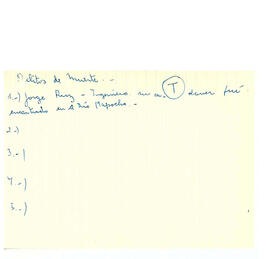 Delitos de Muerte.-
1.-) Jorge Ruz - Ingeniero su ca T daver fué
encontrado en el Río Mapocho.-
2-)
3.-)
4.-)
5.-)